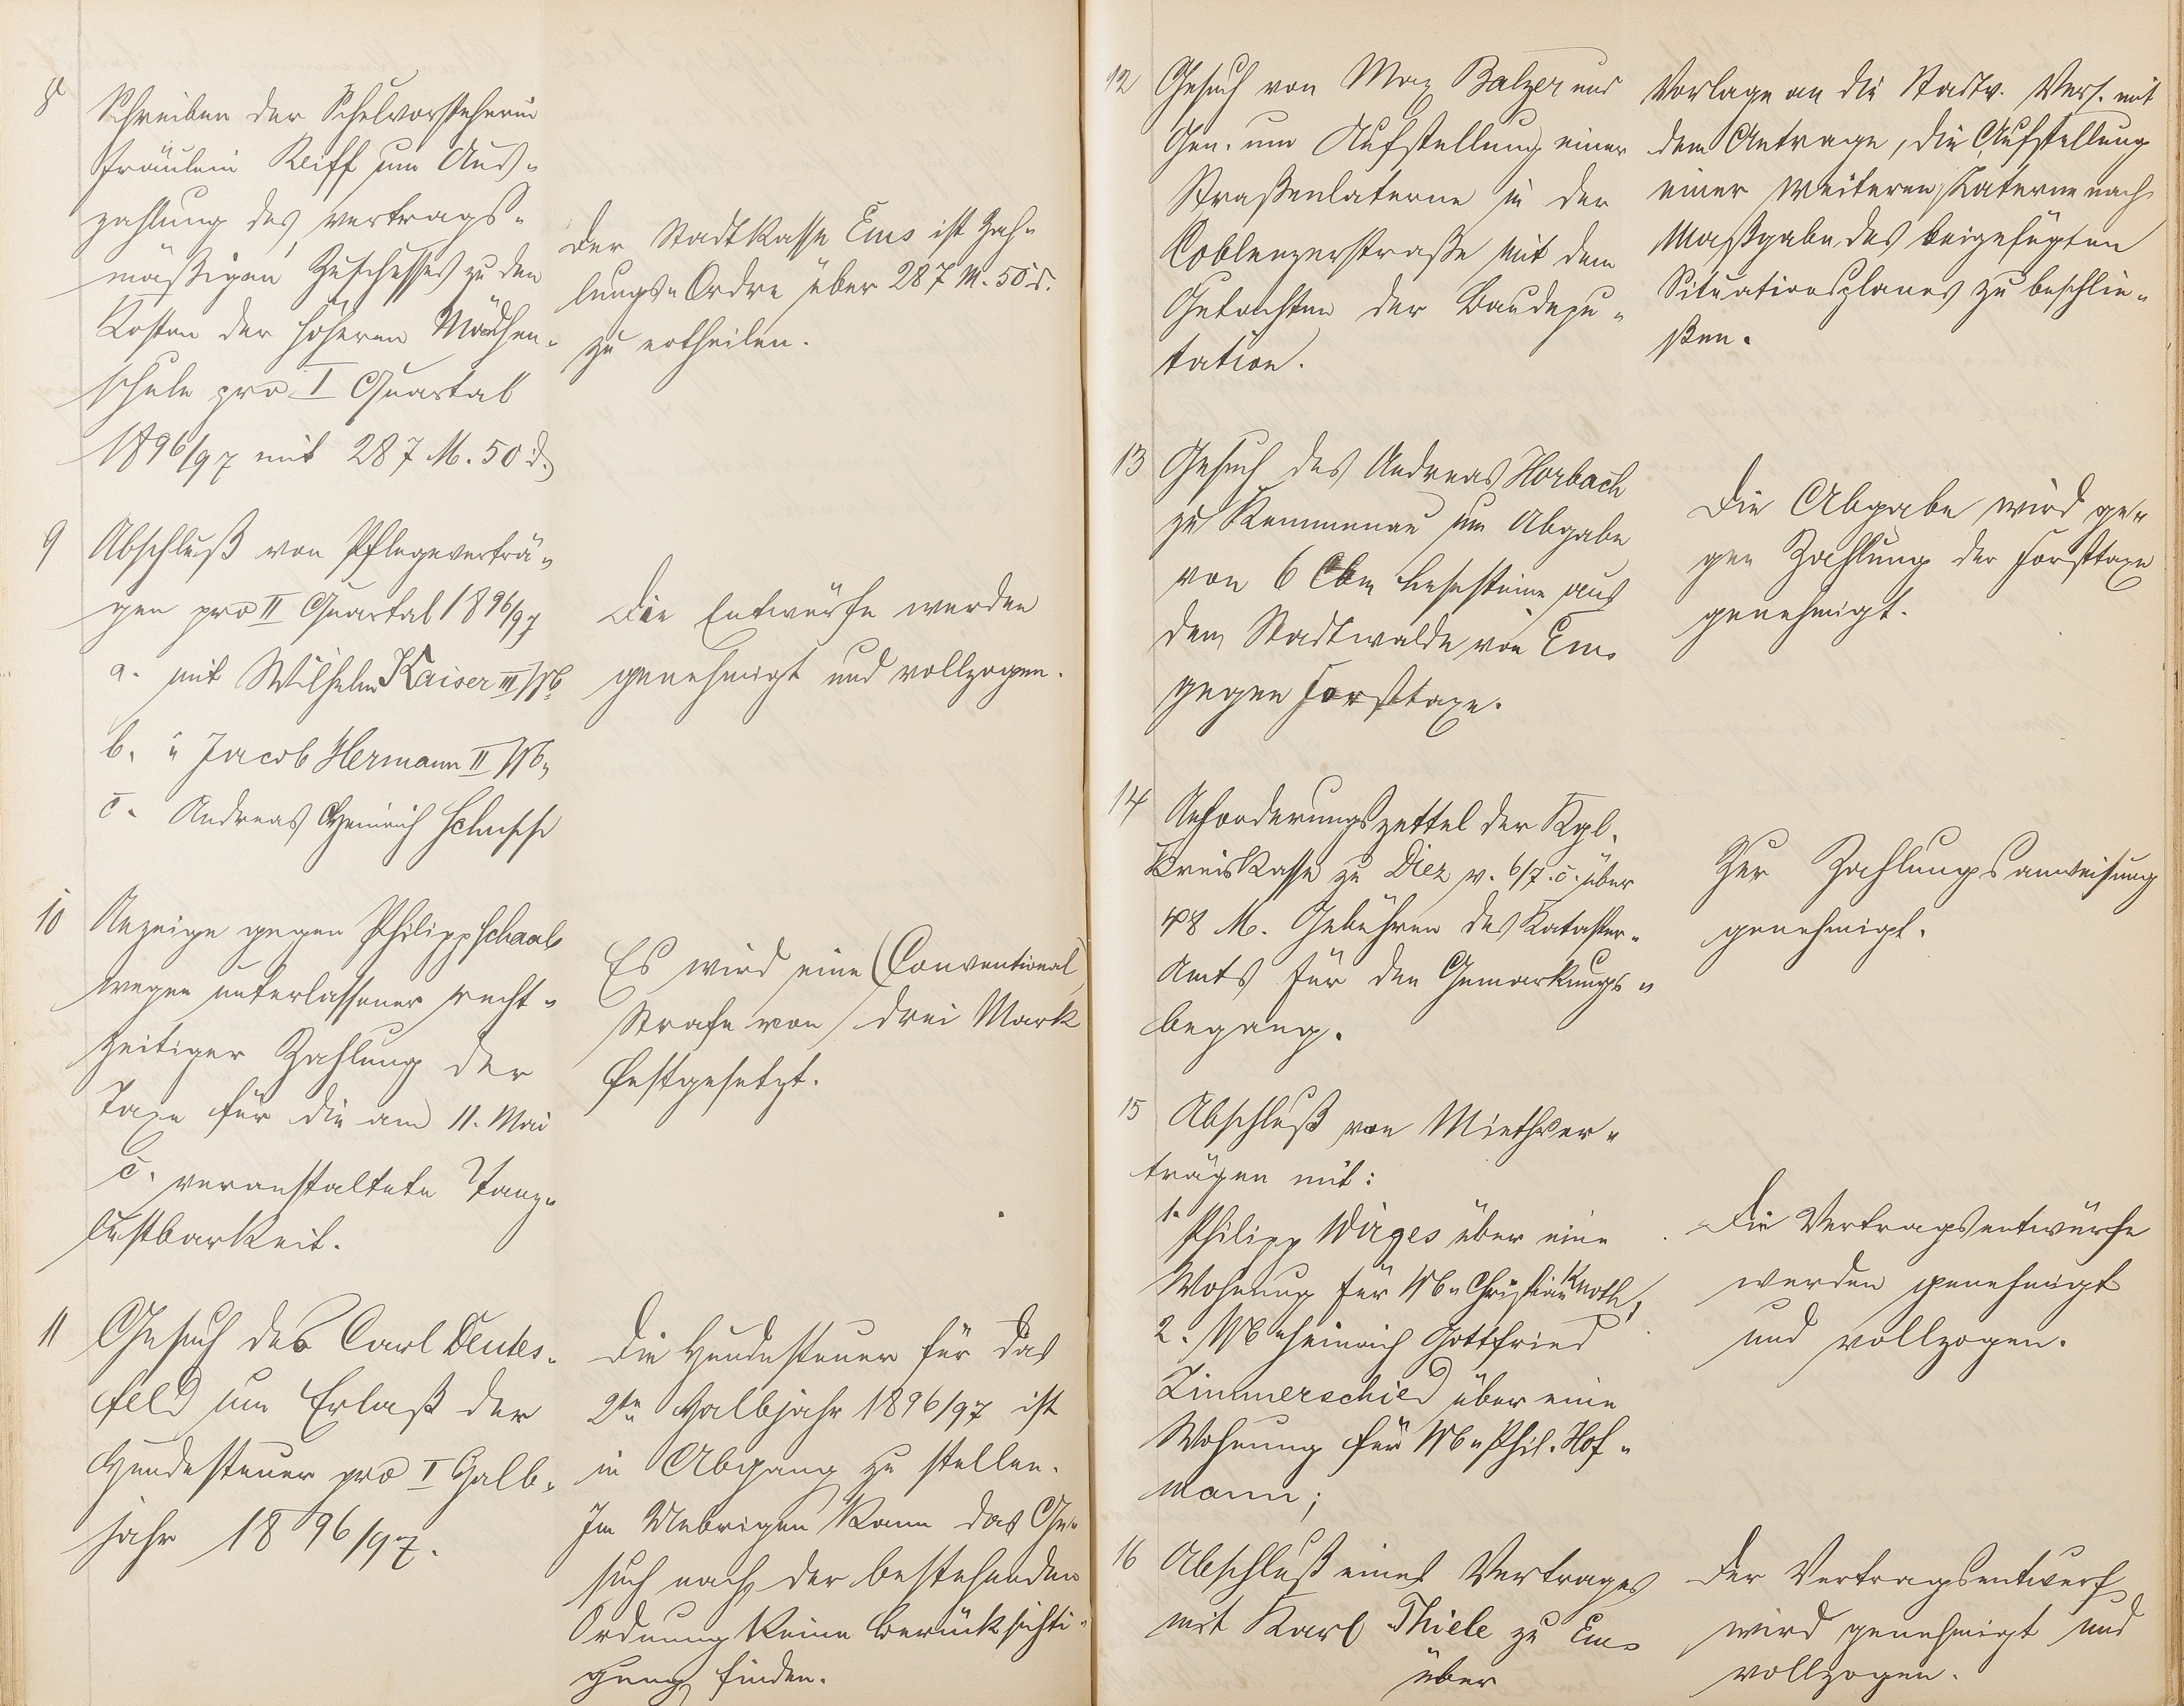 8
Schreiben der Schulvorsteherin
Fräulein Reiff um Aus-
zahlung des vertrags-
mäßigen Zuschusses zu den
Kosten der höheren Mädchen-
schule pro I Quartal
1896/97 mit 287 M. 50 d.
Der Stadtkasse Ems ist Zah-
lungs-Ordre über 287 M. 50 d.
zu ertheilen.
9
Abschluß von Pflegeverträ-
gen pro II Quartal 1896/97
a. mit Wilhelm Kaiser III Wb.
b. " Jacob Hermann II Wb.
c. Andreas Heinrich
Die Entwürfe werden
genehmigt und vollzogen.
10
Anzeige gegen Philipp Schaab
wegen unterlassener recht-
zeitiger Zahlung der
Taxe für die am 11. Mai
c. veranstaltete Tanz-
lustbarkeit.
Es wird eine Conventional
Strafe von drei Mark
festgesetzt.
11
Gesuch des Carl Deutes-
feld um Erlaß der
Hundesteuer pro I Halb-
jahr 1896/97.
Die Hundesteuer für das
2te Halbjahr 1896/97 ist
in Abgang zu stellen.
Im Uebrigen kann das Ge-
such nach der bestehenden
Ordnung keine Berücksichti-
gung finden.
12
Gesuch von Max Balzer und
Gen. um Aufstellung einer
Straßenlaterne in der
Coblenzerstraße mit dem
Gutachten der Baudepu-
tation.
Vorlage an die Stadtv. Vers. mit
dem Antrage, die Aufstellung
einer weiteren Laterne nach
Maßgabe des beigefügten
Situationsplanes zu beschlie-
ßen.
13
Gesuch des Andreas Horbach
zu Kemmenau um Abgabe
von 6 Cbm Lesesteine aus
dem Stadtwalde von Ems
gegen Forsttaxe.
Die Abgabe wird ge-
gen Zahlung der Forsttaxe
genehmigt.
14
Anforderungszettel der Kgl.
Kreiskasse zu Diez v. 6/7. c. über
48 M. Gebühren des Kataster-
Amts für den Gemarkungs-
begang.
Zur Zahlungsanweisung
genehmigt.
15
Abschluß von Miethver-
trägen mit:
1. Philipp Wirges über eine
Wohnung für Wb. Christian Knoth,
2. Wb. Heinrich Gottfried
Zimmerschied über eine
Wohnung für Wb. Phil. Hof-
mann;
Die Vertragsentwürfe
werden genehmigt
und vollzogen.
16
Abschluß eines Vertrages
mit Karl Thiele zu Ems
über
Der Vertragsentwurf
wird genehmigt und
vollzogen.